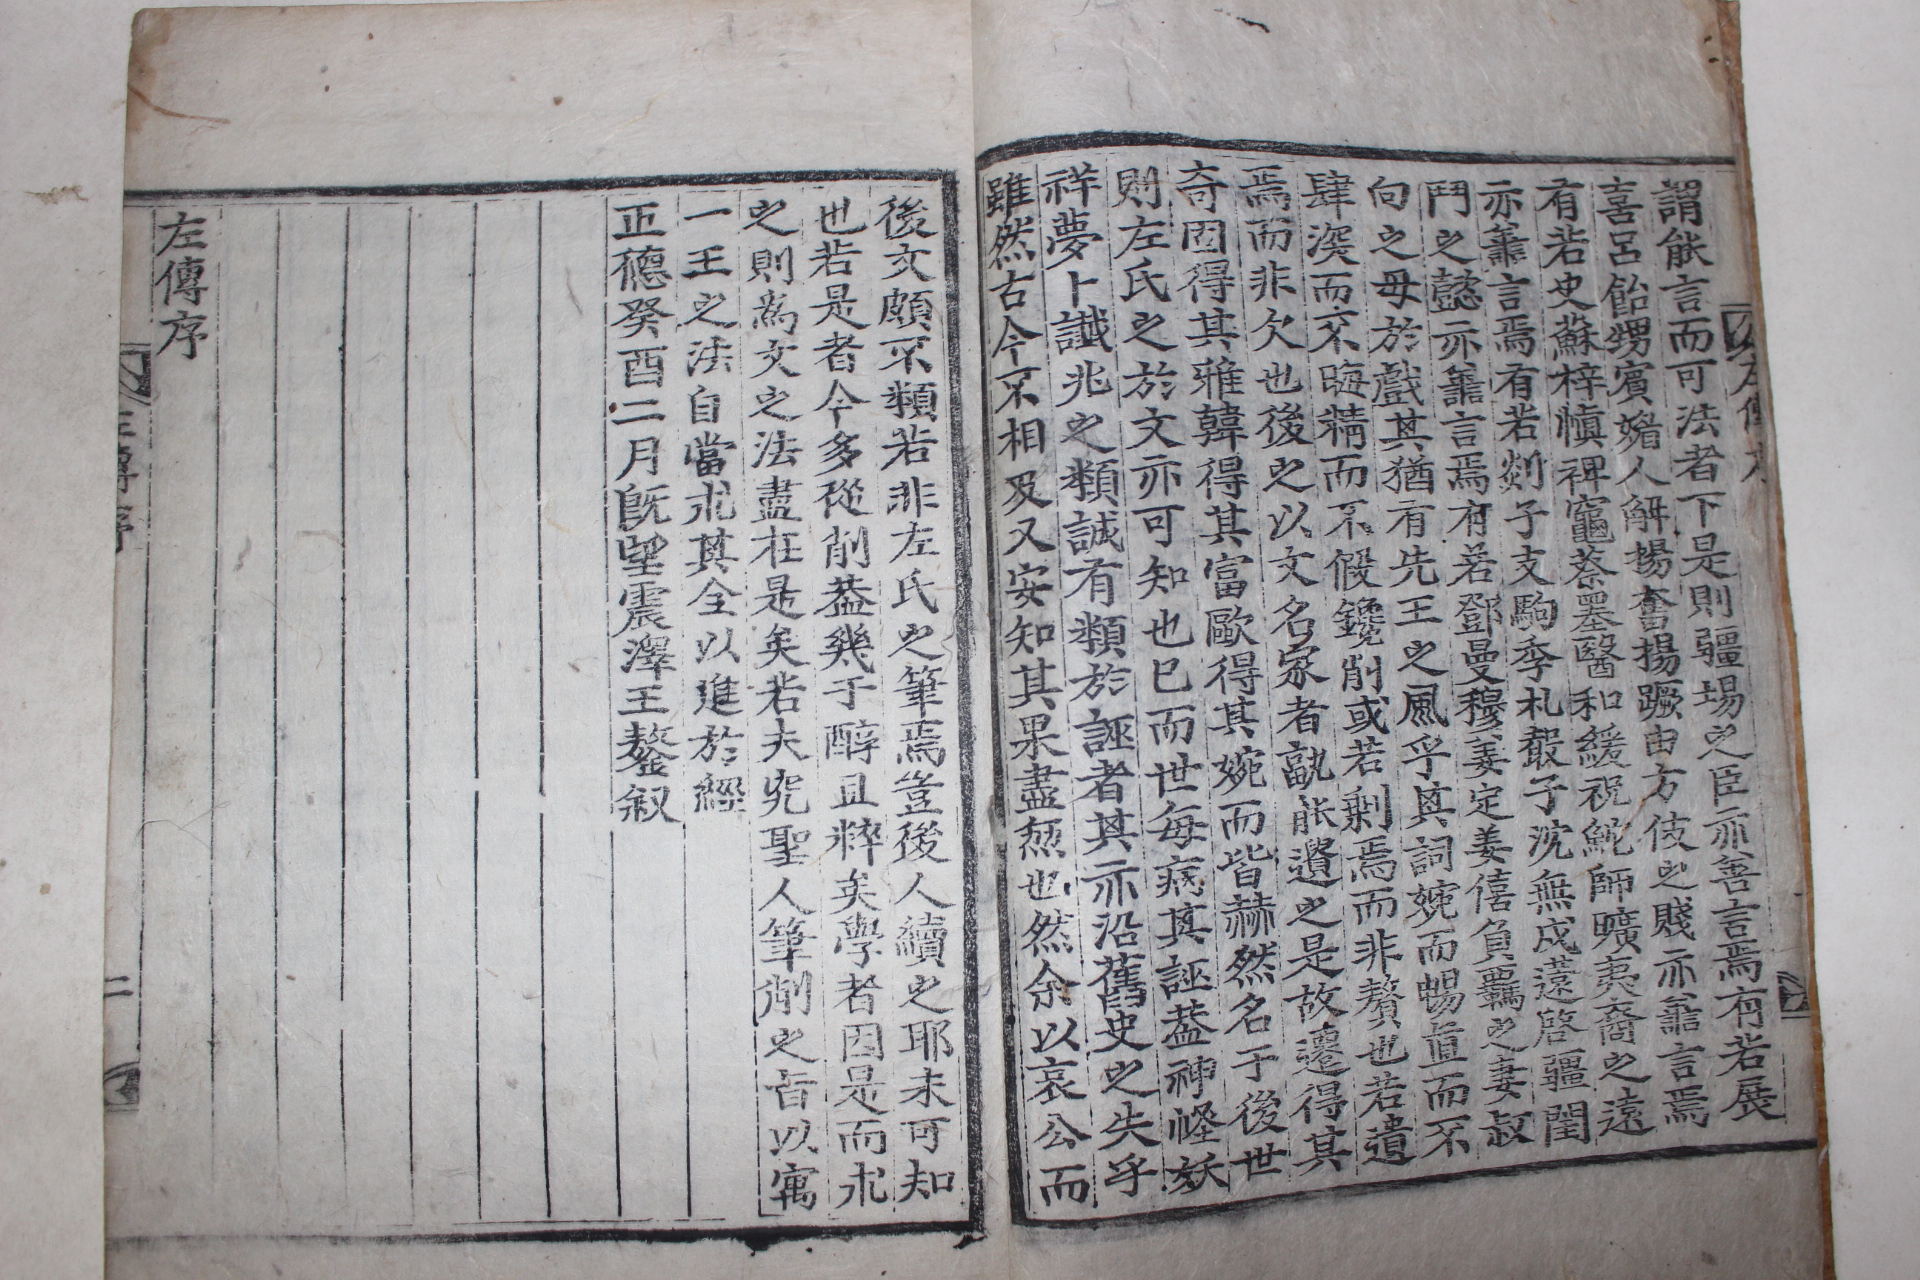 謂能言而可法者下是則疆埸之臣亦善言焉有若展
喜呂飴甥賓媚人解揚奮揚蹶由方伎之賤亦善言焉
有若史蘇梓慎裨竈蔡墨醫和緩祝鮀師曠夷裔之遠
亦善言焉有若郯子支駒季札聲子沈無戍薳啓疆閨
門之懿亦善言焉有若鄧曼穆姜定姜僖負羈之妻叔
向之母於戲其猶有先王之風乎其詞婉而暢直而不
肆深而不晦精而不假鑱削或若剩焉而非贅也若遺
焉而非欠也後之以文名家者孰能遺之是故遷得其
奇固得其雅韓得其富歐得其婉而皆赫然名于後世
則左氏之於文亦可知也已而世每病其誣蓋神怪妖
祥夢卜讖兆之類誠有類於誣者其亦沿舊史之失乎
雖然古今不相及又安知其果盡然也然余以哀公而
後文頗不類若非左氏之筆焉豈後人續之耶未可知
也若是者今多從削蓋幾于醇且粹矣學者因是而求
之則爲文之法盡在是矣若夫究聖人筆削之旨以寓
一王之法自當求其全以進於經
正德癸酉二月旣望震澤王鏊叙
左傳序
左傳序
二